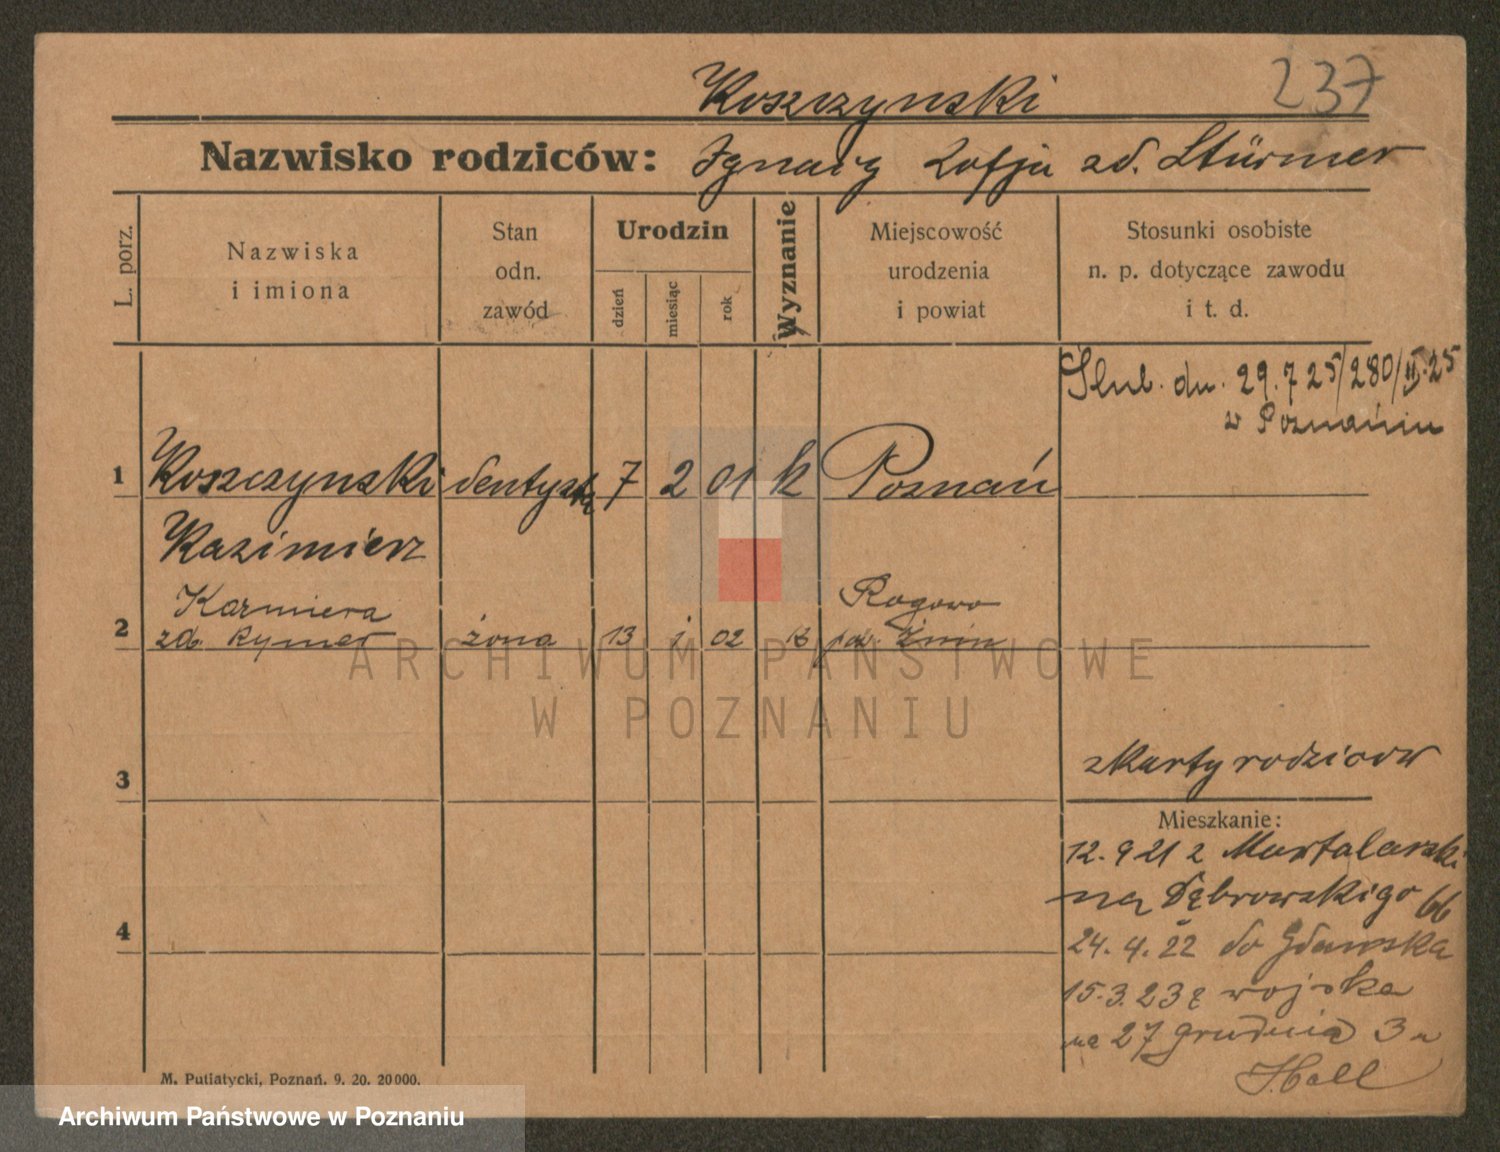 Koszczynski 237
Nazwisko rodziców: Ignacy Zofja zd. Stürmer
L. porz.
Nazwiska
i imiona
Stan
odn.
zawód
Urodzin
dzień
miesiąc
rok
Wyznanie
Miejscowość
urodzenia
i powiat
Stosunki osobiste
n. p. dotyczące zawodu
i t. d.
Ślub. dn. 29.7 25/280/II.25
w Poznaniu
1 Koszczynski dentysta 7 2 01 k Poznań
Kazimierz
Kazmiera Rogowo
2 zd. Rymer żona 13 1 02 k pow. Żnin
ARCHIWUM PAŃSTWOWE
W POZNANIU
z karty rodziców
3
Mieszkanie:
12. 9 21 z Marfalarski
na Dąbrowskiego 66
4
24. 4. 22 do Gdańska
15. 3. 23 z wojska
na 27 grudnia 3
M. Putiatycki, Poznań. 9. 20. 20 000.
Archiwum Państwowe w Poznaniu